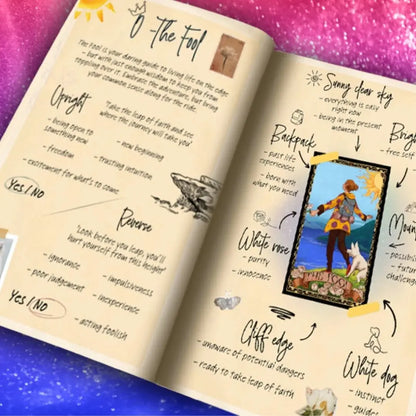 0 - The Fool
The fool is your daring guide to living life on the edge
- but with just enough wisdom to keep you from
toppling over it. Embrace the adventure, but bring
your common sense along for the ride.
Upright
'Take the leap of faith and see
where the journey will take you'
- being open to
something new
- new beginning
- freedom
- trusting intuition
- excitement for what's to come
Yes / NO
Reverse
'Look before you leap, you'll
hurt yourself from this height'
- ignorance
- impulsiveness
- poor judgement
- inexperience
Yes / NO
- acting foolish
Sunny clear sky
- everything is easy
right now
- being in the present
moment
Brigh
- free
Backpack
- past life
experiences
- born with
what you need
White rose
- purity
- innocence
THE FOOL
Moun
- possibi
- futur
challeng
Cliff edge
- unaware of potential dangers
- ready to take leap of faith
White dog
- instinct
- guide